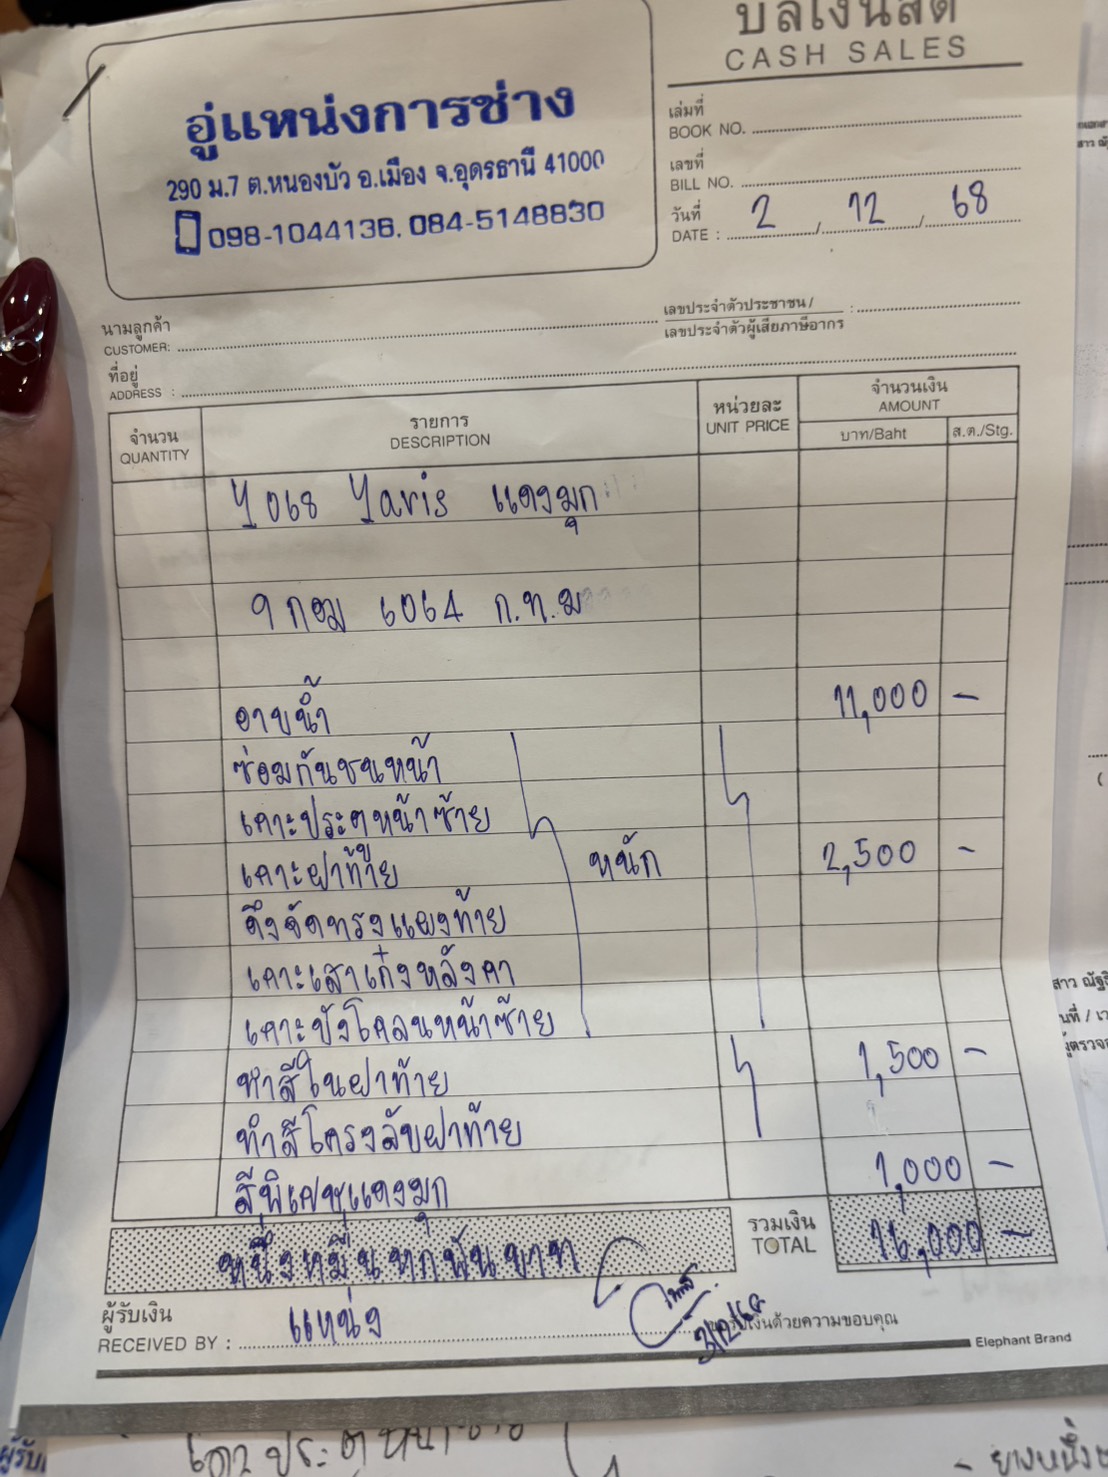 บิลเงินสด
CASH SALES
อู่แหน่งการช่าง
290 ม.7 ต.หนองบัว อ.เมือง จ.อุดรธานี 41000
098-1044136, 084-5148830
เล่มที่
BOOK NO.
เลขที่
BILL NO.
วันที่
DATE : 2 / 12 / 68
นามลูกค้า
CUSTOMER:
เลขประจำตัวประชาชน/ :
เลขประจำตัวผู้เสียภาษีอากร
ที่อยู่
ADDRESS :
จำนวน
QUANTITY
รายการ
DESCRIPTION
หน่วยละ
UNIT PRICE
จำนวนเงิน
AMOUNT
บาท/Baht
ส.ต./Stg.
Y068 Yaris แดงมุก
9 กอม 6064 ก.ท.ม
อาบน้ำ 11,000 -
ซ่อมกันชนหน้า
เคาะประตูหน้าซ้าย
เคาะฝาท้าย หนัก 2,500 -
ดึงจัดทรงแผงท้าย
เคาะเสาเก๋งหลังคา
เคาะบังโคลนหน้าซ้าย
ทำสีในฝาท้าย 1,500 -
ทำสีโครงลับฝาท้าย
สีพิเศษแดงมุก 1,000 -
หนึ่งหมื่นหกพันบาท
รวมเงิน
TOTAL
16,000 -
ผู้รับเงิน
RECEIVED BY : แหน่ง
3/12/68
รับเงินด้วยความขอบคุณ
Elephant Brand
ผู้รับ
เคาะประตูหน้าซ้าย